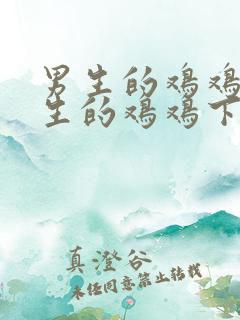 男生的鸡鸡
生的鸡鸡下
真澄谷
未经同意禁止转载